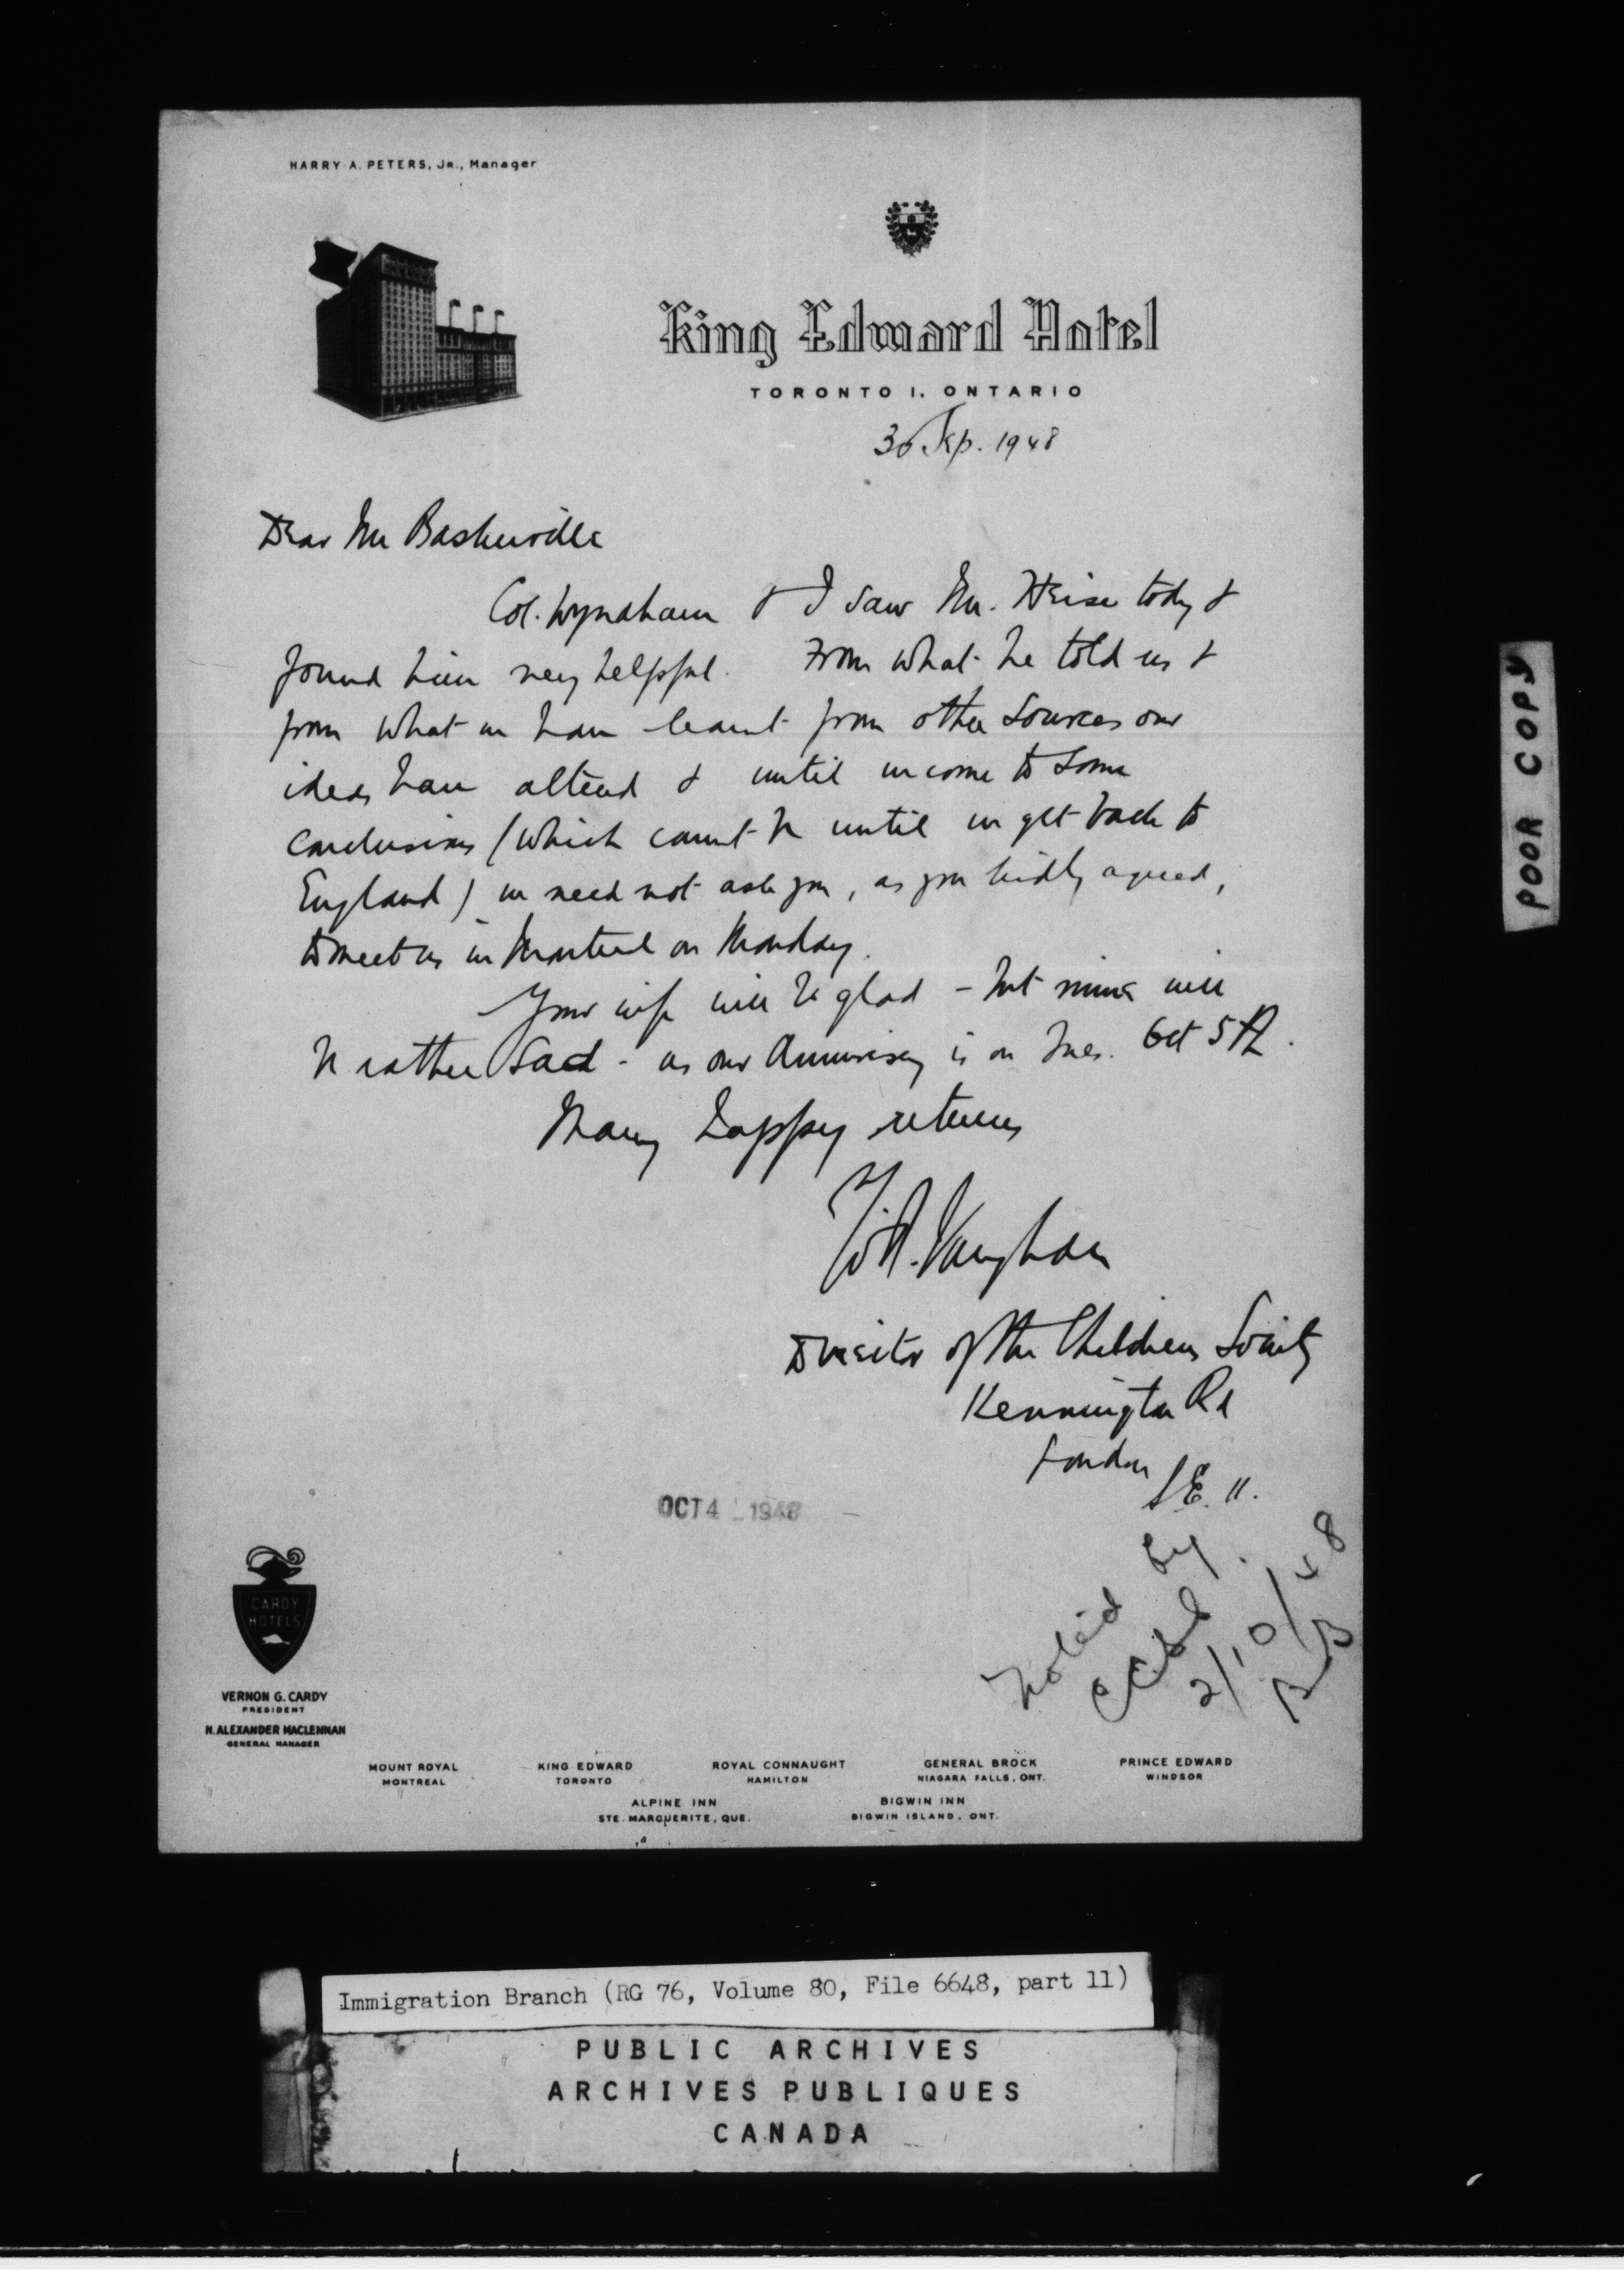 HARRY A. PETERS, JR., Manager
King Edward Hotel
TORONTO 1, ONTARIO
30 Sep. 1948
Dear Mr Baskerville
Col. Wyndham & I saw Mr. Heise today &
found him very helpful. From what he told us &
from what we have learnt from other sources our
ideas have altered & until we come to some
conclusions (which cannot be until we get back to
England) we need not ask you, as you kindly agreed,
to meet us in Montreal on Monday.
Your wife will be glad - but mine will
be rather sad - as our Anniversary is on Tues. Oct 5th.
Many happy returns
Vaughan
Director of the Childrens Society
Kennington Rd
London
S.E. 11.
OCT 4 1948
Noted by
2/10/48
CARDY
HOTELS
VERNON G. CARDY
PRESIDENT
H. ALEXANDER MACLENNAN
GENERAL MANAGER
MOUNT ROYAL KING EDWARD ROYAL CONNAUGHT GENERAL BROCK PRINCE EDWARD
MONTREAL TORONTO HAMILTON NIAGARA FALLS, ONT. WINDSOR
ALPINE INN BIGWIN INN
STE. MARGUERITE, QUE. BIGWIN ISLAND, ONT.
POOR COPY
Immigration Branch (RG 76, Volume 80, File 6648, part 11)
PUBLIC ARCHIVES
ARCHIVES PUBLIQUES
CANADA